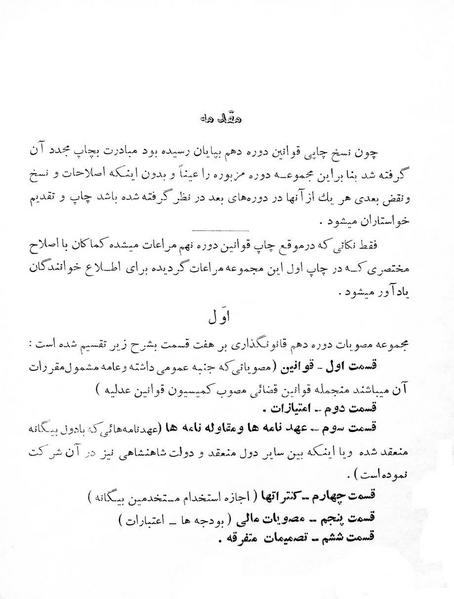 مقدمه
چون نسخ چاپی قوانین دوره دهم بپایان رسیده بود مبادرت بچاپ مجدد آن
گرفته شد بنا براین مجموعه دوره مزبوره را عیناً و بدون اینکه اصلاحات و نسخ
ونقض بعدی هر یك از آنها در دوره‌های بعد در نظر گرفته شده باشد چاپ و تقدیم
خواستاران میشود .
فقط نکاتی که درموقع چاپ قوانین دوره نهم مراعات میشده کماکان با اصلاح
مختصری که در چاپ اول این مجموعه مراعات گردیده برای اطلاع خوانندگان
یادآور میشود .
اوّل
مجموعه مصوبات دوره دهم قانونگذاری بر هفت قسمت بشرح زیر تقسیم شده است :
قسمت اول ــ قوانین (مصوباتی‌که جنبه عمومی داشته وعامه مشمول مقررات
آن میباشند منجمله قوانین قضائی مصوب کمیسیون قوانین عدلیه )
قسمت دوم ــ امتیازات .
قسمت سوم ــ عهد نامه ها ومقاوله نامه ها (عهدنامه‌هائی‌که بادول بیگانه
منعقد شده ویا اینکه بین سایر دول منعقد و دولت شاهنشاهی نیز در آن شرکت
نموده‌است) .
قسمت چهارم ــ کنتراتها ( اجازه استخدام مستخدمین بیگانه )
قسمت پنجم ــ مصوبات مالی ( بودجه ها ــ اعتبارات )
قسمت ششم ــ تصمیمات متفرقه .